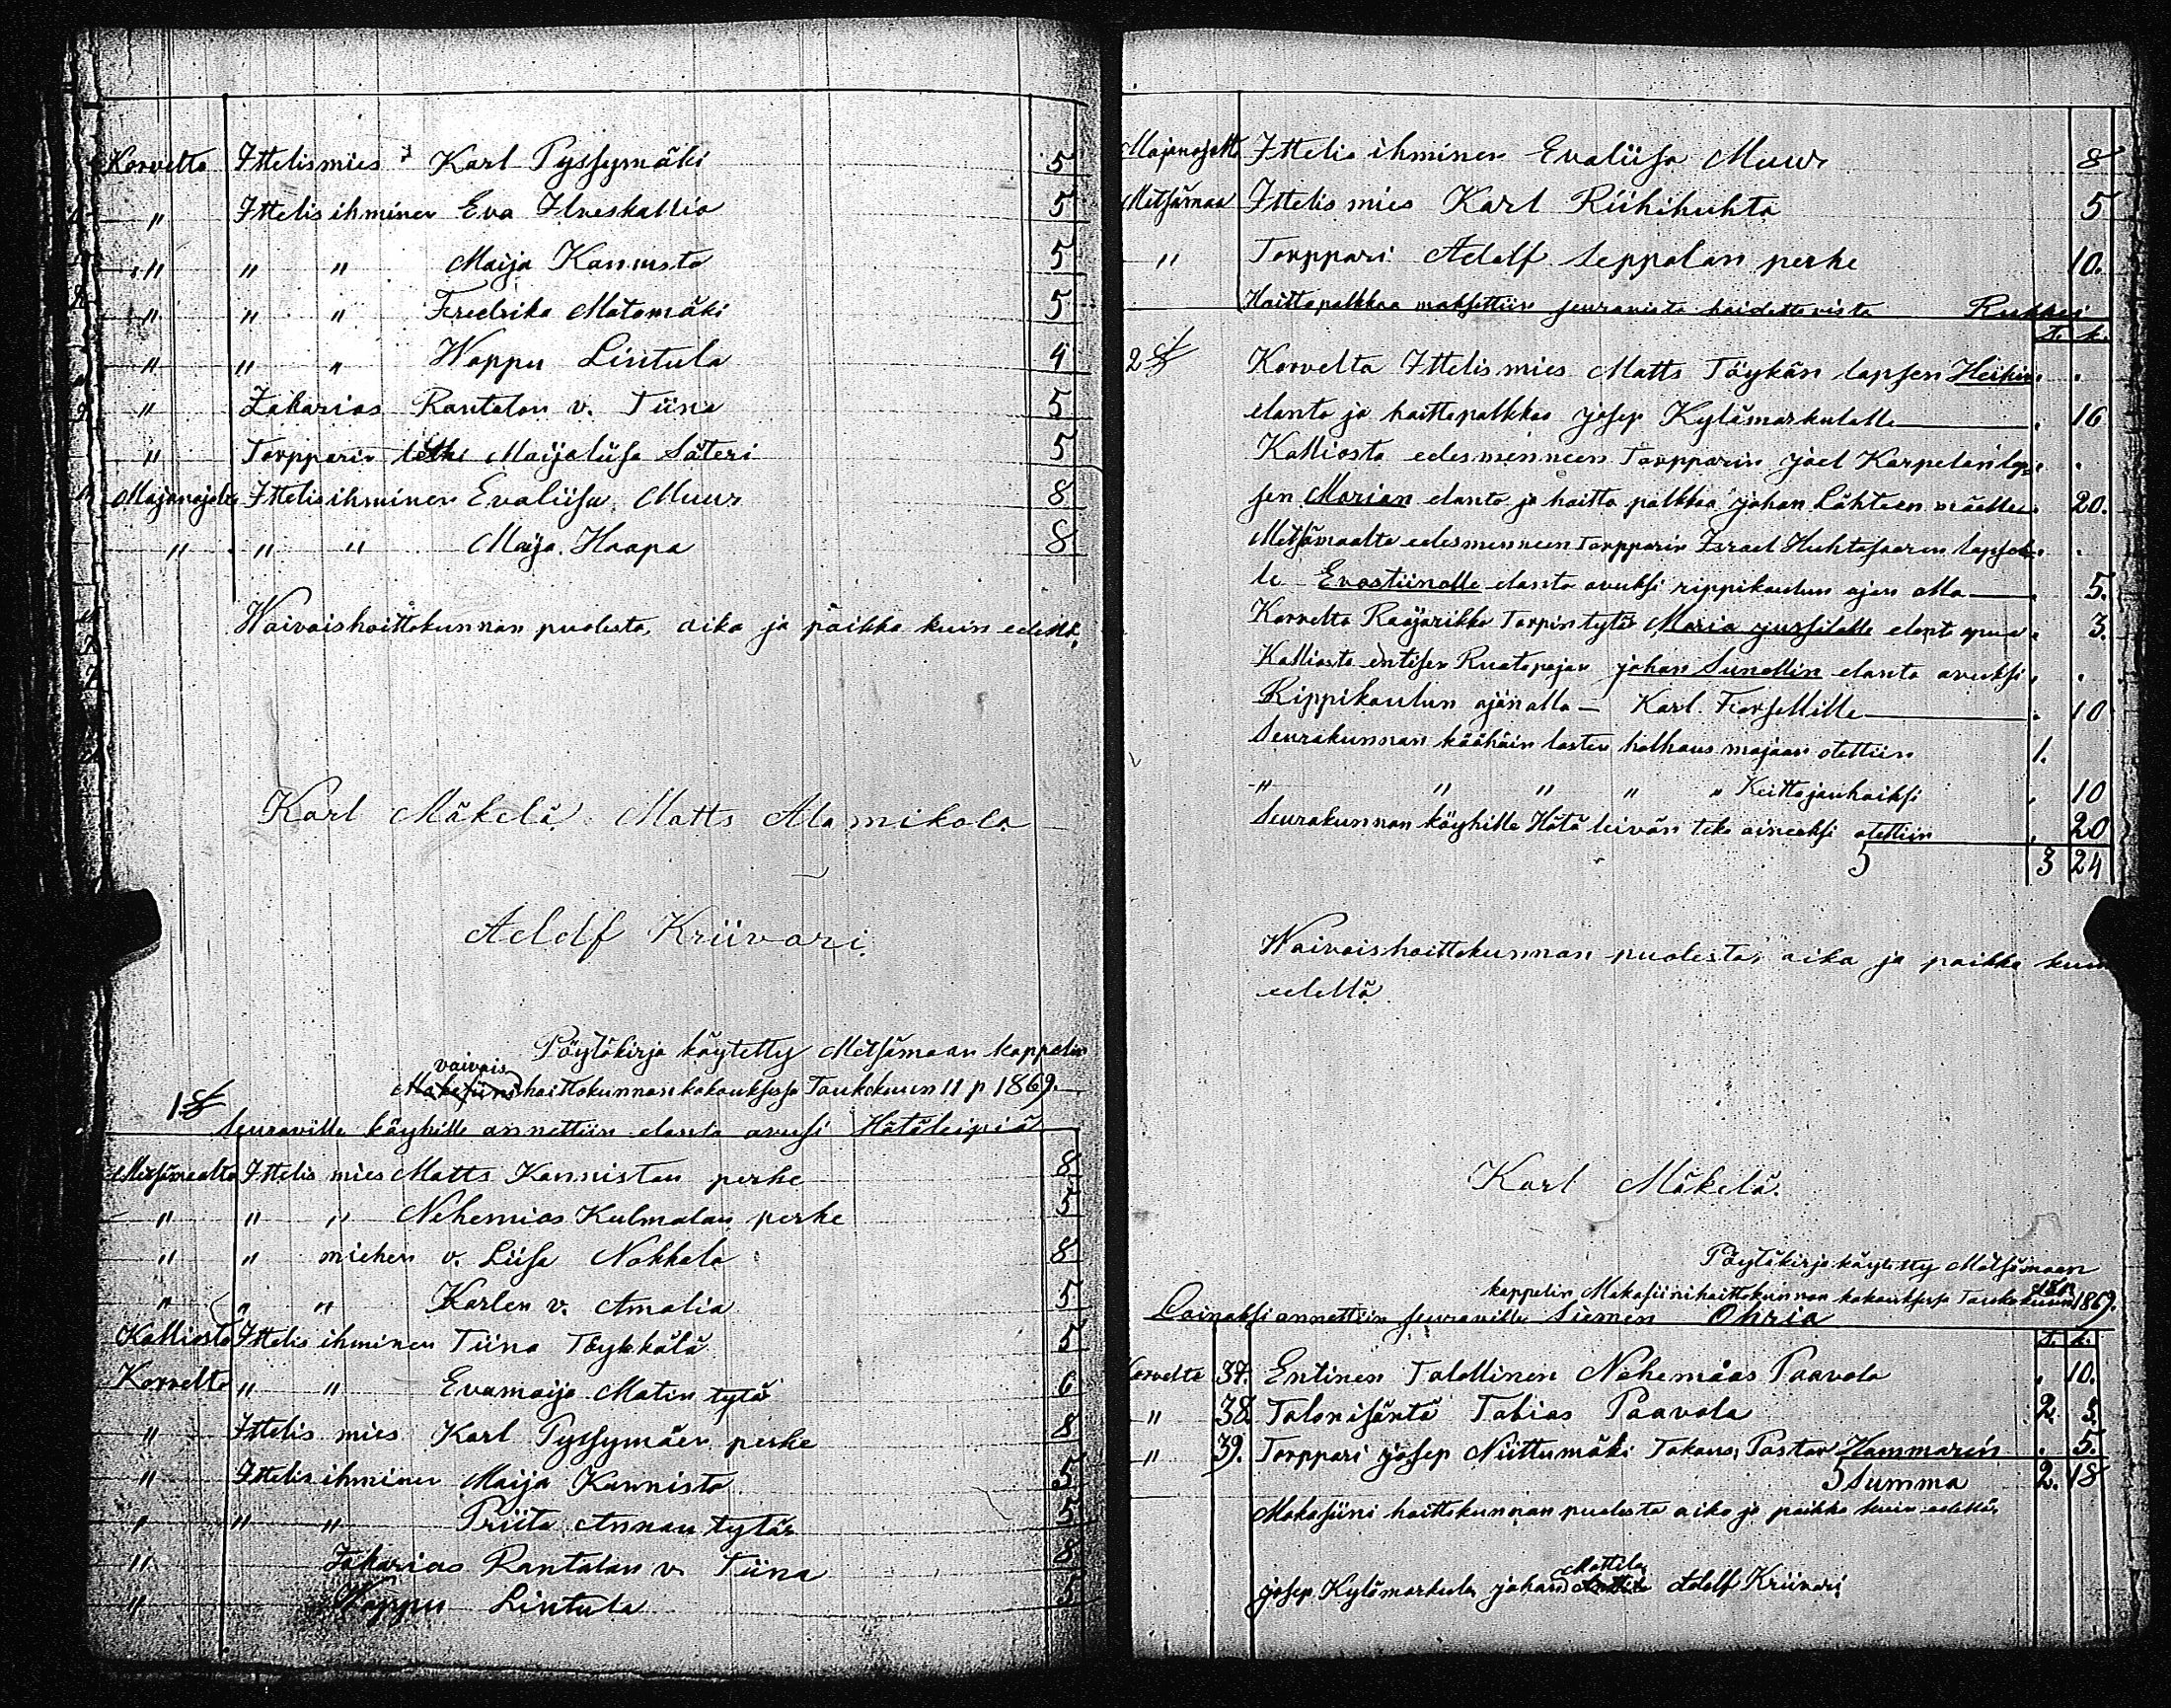 Korvelta Ittelismies Karl Pyssymäki 5
" Ittelisihminen Eva Ilveskallio 5
" " " Maija Kannisto 5
" " " Fredrika Matomäki 5
" " " Wappu Lintula 4
" Zakarias Rantalan v. Tiina 5
" Torpparin leski Maijaliisa Säteri 5
Majanojalta Ittelisihminen Evaliisa Muur 8
" " " Maija Haapa 8
Waivaishoittokunnan puolesta, aika ja paikka kuin edellä.
Karl Mäkelä. Matts Alamikola
Adolf Kriivari.
Pöytäkirja käytetty Metsämaan kappelin
vaivais
hoittokunnan kokouksessa Toukokuun 11 p 1869.
1 §
Seuraville käyhille annettiin elanto avusi Hätäleipiä
Metsämaalta Ittelis mies Matts Kanniston perhe 8
" " " Nehemias Kulmalan perhe 5
" " miehen v. Liisa Nokkala 8
" " " Karlen v. Amalia 5
Kalliosta Ittelis ihminen Tiina Töykkälä 5
Korvelta " " Evamaija Matin tytär 6
" Ittelis mies Karl Pyssymäen perhe 8
" Ittelis ihminen Maija Kannisto 5
" " " Priita Annan tytär 5
" Zakarias Rantalan v. Tiina 8
" Wappu Lintula 5
Majanojalta Ittelis ihminen Evaliisa Muur 8
Metsämaa Ittelis mies Karl Riihihuhta 5
" Torppari Adolf Seppalan perhe 10.
Hoittopalkkaa maksettiin seuravista hoidettavista Rukkei
t. k.
2 § Korvelta Ittelis mies Matts Töykän lapsen Heikin . .
elanto ja hoittopalkkaa Josep Kylämarkulalle . 16
Kalliosta edesmenneen Torpparin Joel Karpelan lap= . .
sen Marian elanto ja hoitto palkkaa Johan Lähteen mäelle . 20.
Metsämaalta edesmenneen Torpparin Israel Huhtasaaren lapsel= . .
le Evastiinalle elanto avuksi rippikoulun ajan alla . 5.
Korvelta Raajarikko Torpin tytär Maria Jussilalle elant apua . 3.
Kalliosta entisen Ruotopojan Johan Sunellin elanto avuksi . .
Rippikoulun ajan alla — Karl Forsellille . 10
Seurakunnan kööhäin lasten holhous majaan otettiin 1.
" " " " " Keittojauhoiksi . 10
Seurakunnan köyhille Hätä leivän teko aineeksi otettiin . 20
S 3 24
Waivaishoittokunnan puolesta, aika ja paikka kuin
edellä.
Karl Mäkelä.
Pöytäkirja käytetty Metsämaan
kappelin Makasiinihoittokunnan kokouksessa Toukokuun 18 p 1869.
Lainaksi annettiin seuraville Siemen Ohria
t. k.
Korvelta 37. Entinen Talollinen Nehemias Paavola . 10.
" 38. Talonisäntä Tobias Paavola 2. 3.
" 39. Torppari Josep Niittumäki Takaus, Pastor Hammarén . 5.
S Summa 2. 18
Makasiini hoittokunnan puolesta aika ja paikka kuin edellä.
Mattila
Josep Kylämarkula Johan Adolf Kriivari